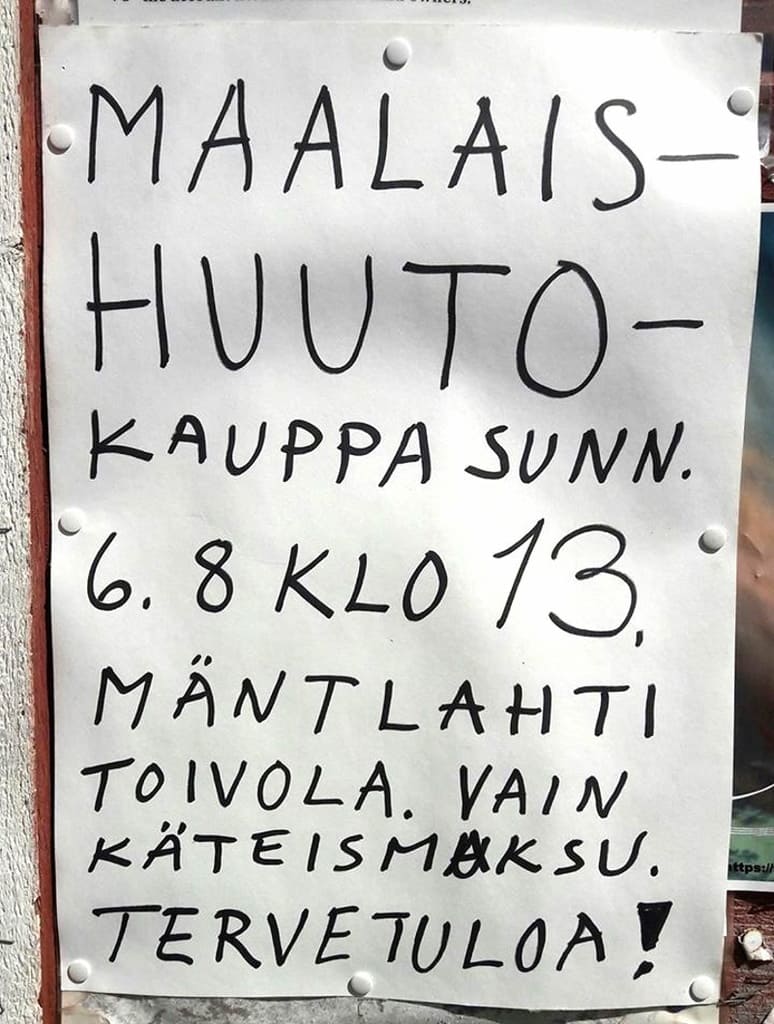 MAALAIS-
HUUTO-
KAUPPA SUNN.
6. 8 KLO 13.
MÄNTLAHTI
TOIVOLA. VAIN
KÄTEISMAKSU.
TERVETULOA!
ttps://